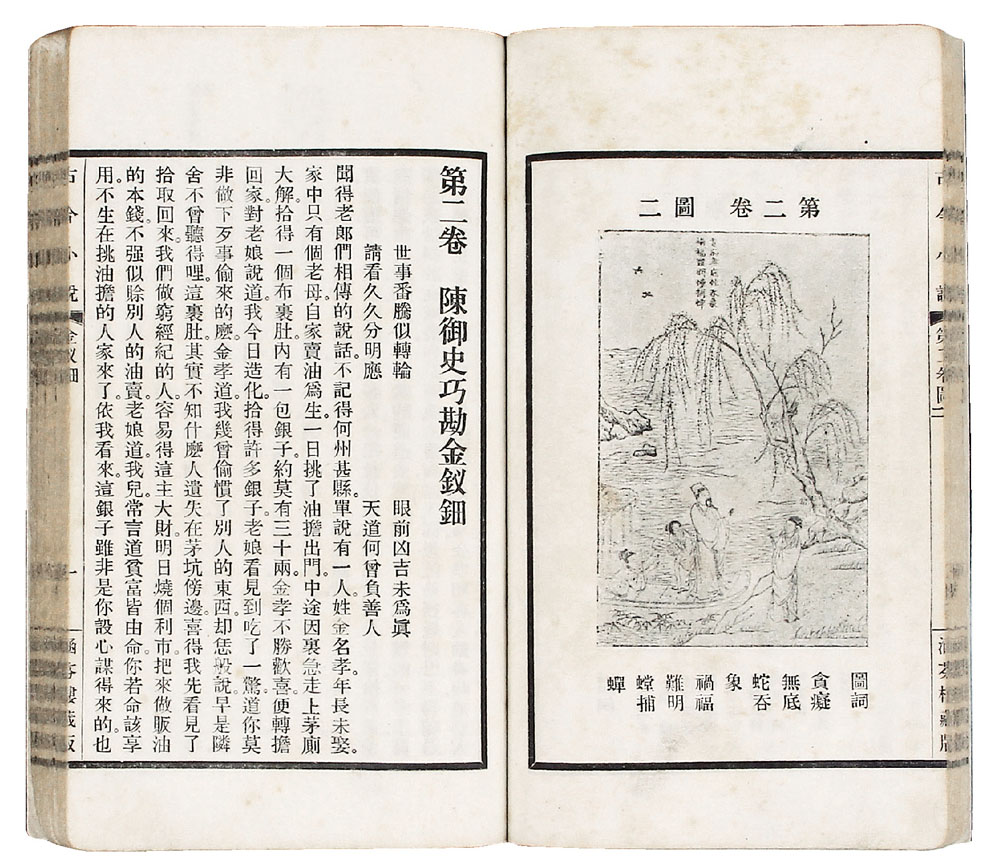 古今小說 第二卷圖二 涵芬樓藏版
第二卷 圖二
圖詞
貪癡
無底
蛇吞
象
禍福
難明
螳捕
蟬
第二卷 陳御史巧勘金釵鈿
世事番騰似轉輪 眼前凶吉未爲眞
請看久久分明應 天道何曾負善人
聞得老郎們相傳的說話。不記得何州甚縣。單說有一人。姓金名孝。年長未娶。
家中只有個老母。自家賣油爲生。一日挑了油擔出門。中途因裏急。走上茅廁
大解。拾得一個布裹肚。內有一包銀子。約莫有三十兩。金孝不勝歡喜。便轉擔
回家。對老娘說道。我今日造化。拾得許多銀子。老娘看見。到吃了一驚。道。你莫
非做下歹事偷來的麽。金孝道。我幾曾偷慣了別人的東西。却恁般說。早是隣
舍不曾聽得哩。這裹肚。其實不知什麽人遺失在茅坑傍邊。喜得我先看見了
拾取回來。我們做窮經紀的人。容易得這主大財。明日燒個利市。把來做販油
的本錢。不强似賒別人的油賣。老娘道。我兒。常言道貧富皆由命。你若命該享
用。不生在挑油擔的人家來了。依我看來。這銀子雖非是你設心謀得來的。也
古今小說 金釵鈿 一 涵芬樓藏版